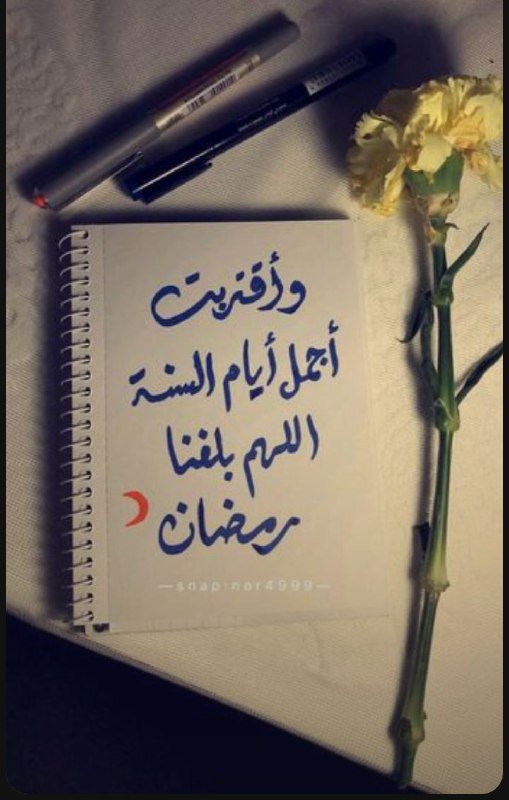 وأقتربت
أجمل أيام السنة
اللهم بلغنا
رمضان
—snap:nor4999—